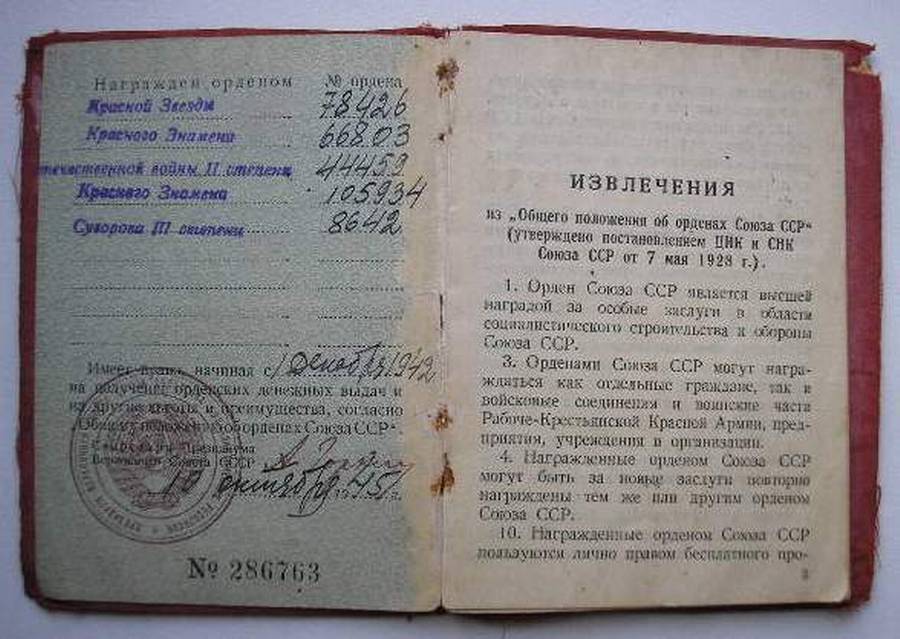 Награжден орденом № ордена
Красной Звезды 78426
Красного Знамени 66803
Отечественной войны II степени 44459
Красного Знамени 105934
Суворова III степени 8642
Имеет право, начиная с 1 декабря 1942
на получение орденских денежных выдач и
на другие льготы и преимущества, согласно
„Общему положению об орденах Союза ССР“
Секретарь Президиума
Верховного Совета СССР
10 октября 1945 г.
№ 286763
ИЗВЛЕЧЕНИЯ
из „Общего положения об орденах Союза ССР“
(утверждено постановлением ЦИК и СНК
Союза ССР от 7 мая 1928 г.).
1. Орден Союза ССР является высшей
наградой за особые заслуги в области
социалистического строительства и обороны
Союза ССР.
3. Орденами Союза ССР могут награ-
ждаться как отдельные граждане, так и
войсковые соединения и воинские части
Рабоче-Крестьянской Красной Армии, пред-
приятия, учреждения и организации.
4. Награжденные орденом Союза ССР
могут быть за новые заслуги повторно
награждены тем же или другим орденом
Союза ССР.
10. Награжденные орденом Союза ССР
пользуются лично правом бесплатного про-
3